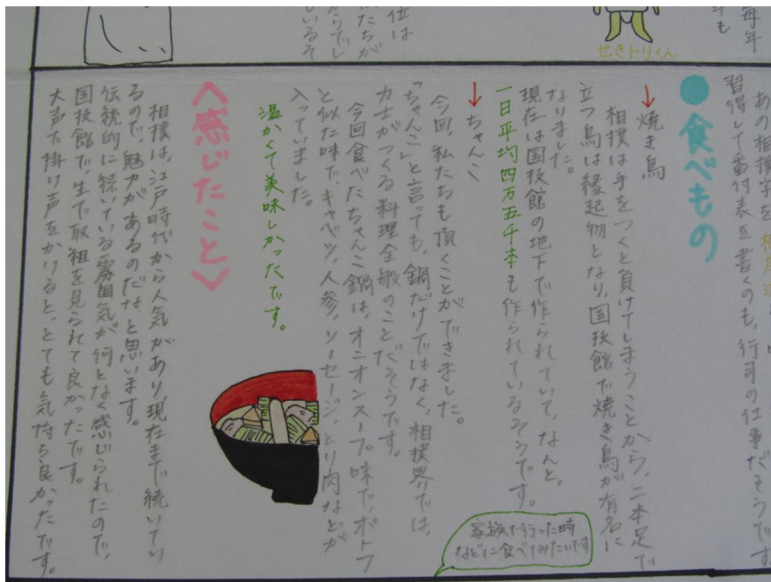 毎年
も
せきトリくん
位は
たちが
たらでし
いるそ
あの相撲字を
習得して番付表を書くのも、行司の仕事だそうです
●食べもの
→焼き鳥
相撲は手をつくと負けてしまうことから、二本足で
立つ鳥は縁起物となり、国技館で焼き鳥が有名に
なりました。
現在は国技館の地下で作られていて、なんと、
一日平均四万五千本も作られているそうです。
家族で行った時
などに食べてみたいです
→ちゃんこ
今回、私たちも頂くことができました。
「ちゃんこ」と言っても、鍋だけではなく、相撲界では、
力士がつくる料理全般のことだそうです。
今回食べたちゃんこ鍋は、オニオンスープ味で、ポトフ
と似た味で、キャベツ、人参、ソーセージ、とり肉などが
入っていました。
温かくて美味しかったです。
〈感じたこと〉
相撲は、江戸時代から人気があり、現在まで続いてい
るので、魅力があるのだなと思います。
伝統的に続いている雰囲気が何となく感じられたので、
国技館で、生で取組を見られて良かったです。
大声で掛け声をかけると、とても気持ち良かったです。